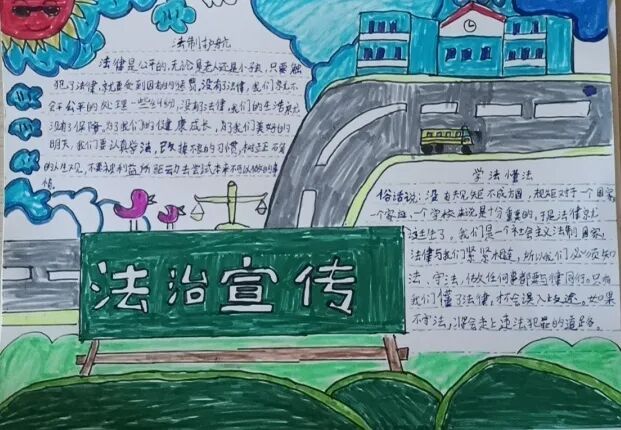 法制护航
法律是公平的,无论是老人还是小孩,只要触
犯了法律,就要受到国家的惩罚,没有了法律,我们就不
会公平公平的处理一些事情,没有了法律,我们的生活就
没有了保障,为了我们的健康成长,为了我们美好的
明天,我们要认真学法,改掉不良的习惯,树立正确
的人生观,不要被利益所驱动去尝试本来不可以做的事
情。
学法懂法
俗话说:没有规矩不成方圆,规矩对于一个国家
一个家庭,一个学校来说是十分重要的,于是法律就
诞生了。我们是一个社会主义法制国家,
法律与我们紧紧相连,所以我们必须知
法、守法,做任何事都要与法律同行。只有
我们懂了法律,才不会误入歧途。如果
不守法,将会走上违法犯罪的道路。
法治宣传